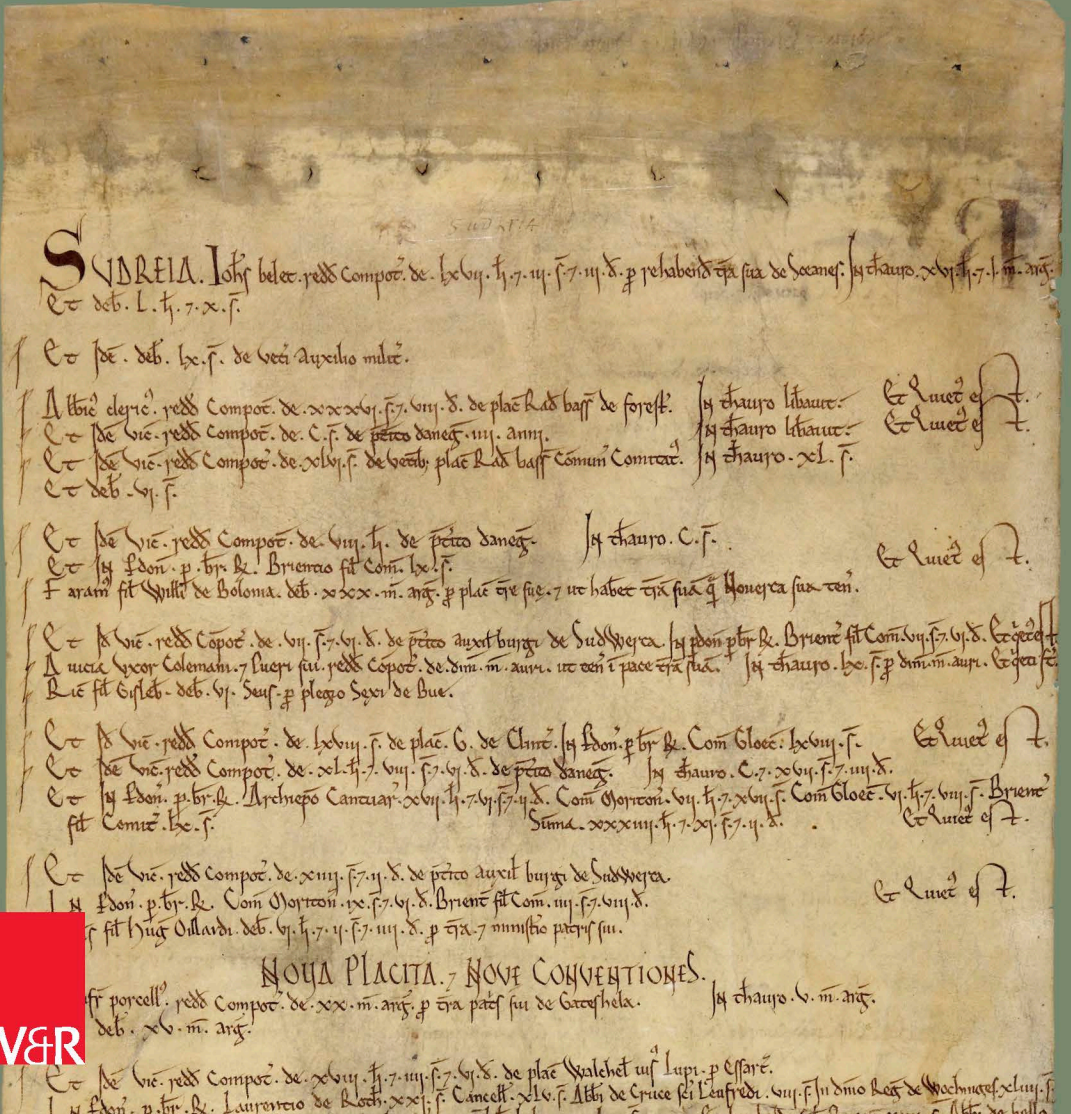 SUDREIA
SUDREIA. Joħs belet. redđ Compot̃. de. lxvii. ħ. 7. iii. s̃. 7. iii. đ. ꝑ rehabenđ t̃ra sua de Sceanes. In th̃auro. xvi. ħ. 7. i. m̃. arg̃.
Et deb̃. L. ħ. 7. x. s̃.
Et Idẽ. deb̃. lx. s̃. de vet̃i Auxilio milit̃.
Albic̃ cleric̃. redđ Compot̃. de. xxxvi. s̃. 7. viii. đ. de plac̃ Rađ bass̃ de forest̃. In th̃auro lib̃auit. Et Quiet̃ est.
Et Idẽ vic̃. redđ Compot̃. de. C. s̃. de p̃t̃ito daneg̃. iiii. anni. In th̃auro lib̃auit. Et Quiet̃ est.
Et Idẽ vic̃. redđ Compot̃. de. xlvi. s̃. de vet̃ib; plac̃ Rađ bass̃ Com̃un̄ Comitat̃. In th̃auro. xL. s̃.
Et deb̃. vi. s̃.
Et Idẽ vic̃. redđ Compot̃. de. viii. ħ. de p̃t̃ito daneg̃. In th̃auro. C. s̃.
Et In ꝑdon̄. ꝑ. br̃. R̃. Brientio fil̃ Com̃. lx. s̃. Et Quiet̃ est.
Faram̃ fil̃ Will̃i de Bolonia. deb̃. xxx. m̃. arg̃. ꝑ plac̃ t̃re suę. 7 ut habeat t̃rã suã q̃ Nouerca sua ten̄.
Et Iđ vic̃. redđ Cõpot̃. de. vii. s̃. 7. vi. đ. de p̃t̃ito auxil̃ burgi de Sudwerca. In ꝑdon̄ ꝑ br̃ R̃. Brient̃ fil̃ Com̃. vii. s̃. 7. vi. đ. Et q̃et̃ est.
Auicia Vxor Colemani. 7 Pueri sui. redđ Cõpot̃. de. dim̃. m̃. auri. ut ten̄ ĩ pace t̃rã suã. In th̃auro. lx. s̃. ꝑ dim̃. m̃. auri. Et q̃eti st̃.
Ric̃ fil̃ Gisleb̃. deb̃. vi. Seus. ꝑ plegio Sexi de Bue.
Et Iđ vic̃. redđ Compot̃. de. lxviii. s̃. de plac̃. G. de Clint̃. In ꝑdon̄. ꝑ. br̃ R̃. Com̃ Gloec̃. lxviii. s̃. Et Quiet̃ est.
Et Idẽ vic̃. redđ Compot̃. de. xL. ħ. 7. viii. s̃. 7. vi. đ. de p̃t̃ito daneg̃. In th̃auro. C. 7. xvii. s̃. 7. iiii. đ.
Et In ꝑdon̄. ꝑ. br̃. R̃. Archiepõ Cantuar̃. xvii. ħ. 7. vi. s̃. 7. ii. đ. Com̃ Moriton̄. vii. ħ. 7. xvii. s̃. Com̃ Gloec̃. vi. ħ. 7. viii. s̃. Brient̃
fil̃ Comit̃. lx. s̃. Sum̃a. xxxiiii. ħ. 7. xi. s̃. 7. ii. đ. Et Quiet̃ est.
Et Idẽ vic̃. redđ Compot̃. de. xiiii. s̃. 7. ii. đ. de p̃t̃ito auxil̃ burgi de Sudwerca.
In ꝑdon̄. ꝑ. br̃. R̃. Com̃ Moriton̄. ix. s̃. 7. vi. đ. Brient̃ fil̃ Com̃. iiii. s̃. 7. viii. đ. Et Quiet̃ est.
fil̃ Hug̃ Oillardi. deb̃. vi. ħ. 7. ii. s̃. 7. iiii. đ. ꝑ t̃ra. 7 minist̃io patris sui.
NOVA PLACITA. 7 NOVE CONVENTIONES.
porcell̃. redđ Compot̃. de. xx. m̃. arg̃. ꝑ t̃ra pat̃s sui de Gateshela. In th̃auro. v. m̃. arg̃.
deb̃. xv. m̃. arg̃.
V&R
Et Idẽ vic̃. redđ Compot̃. de. xviii. ħ. 7. iiii. s̃. 7. vi. đ. de plac̃ Walchel̃ uis̃ Lupi. ꝑ Essart̃.
In ꝑdon̄. ꝑ. br̃. R̃. Laurentio de Roth̃. xxi. s̃. Cancell̃. xL.v. s̃. Abb̃i de Cruce sc̃i Leufredi. viii. s̃. In dñio Reg̃ de Wochinges. xLiiii. s̃.